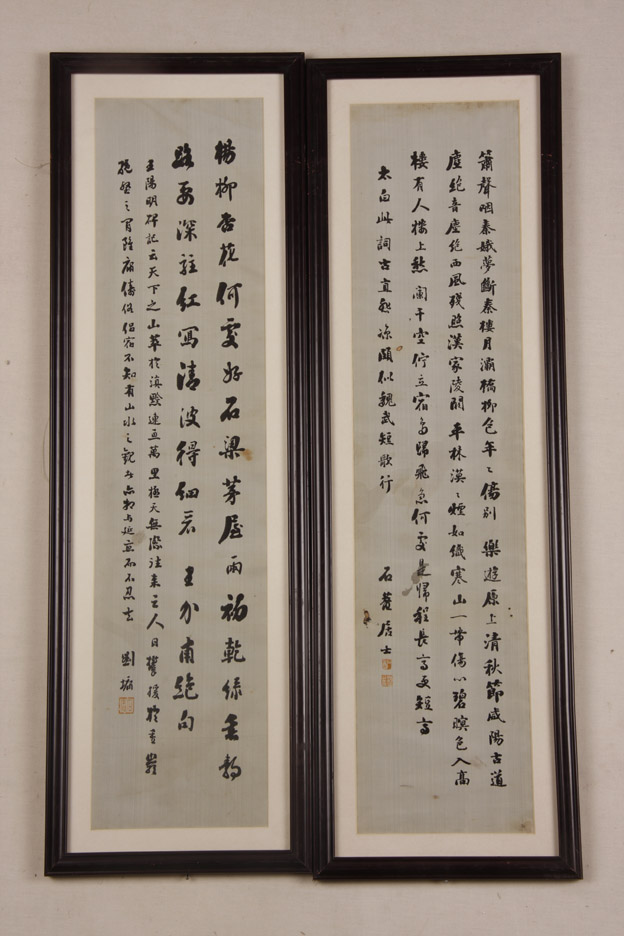 簫聲咽秦娥夢斷秦樓月灞橋柳色年〻傷別 樂遊原上清秋節咸陽古道
塵絕音塵絕西風殘照漢家陵闕 平林漠〻煙如織寒山一帶傷心碧暝色入高
樓有人樓上愁 闌干空佇立宿鳥歸飛急何處是歸程長亭更短亭
太白此詞古直 頗似魏武短歌行
石 居士
楊柳杏花何處好石梁茅屋雨初乾綠垂靜
路要深駐紅寫清波得細看 王介甫絕句
王陽明碑記云天下之山萃於滇黔連亙萬里極天無際往來之人日攀援於
之 侶 不知有山水之觀 不忍去
劉